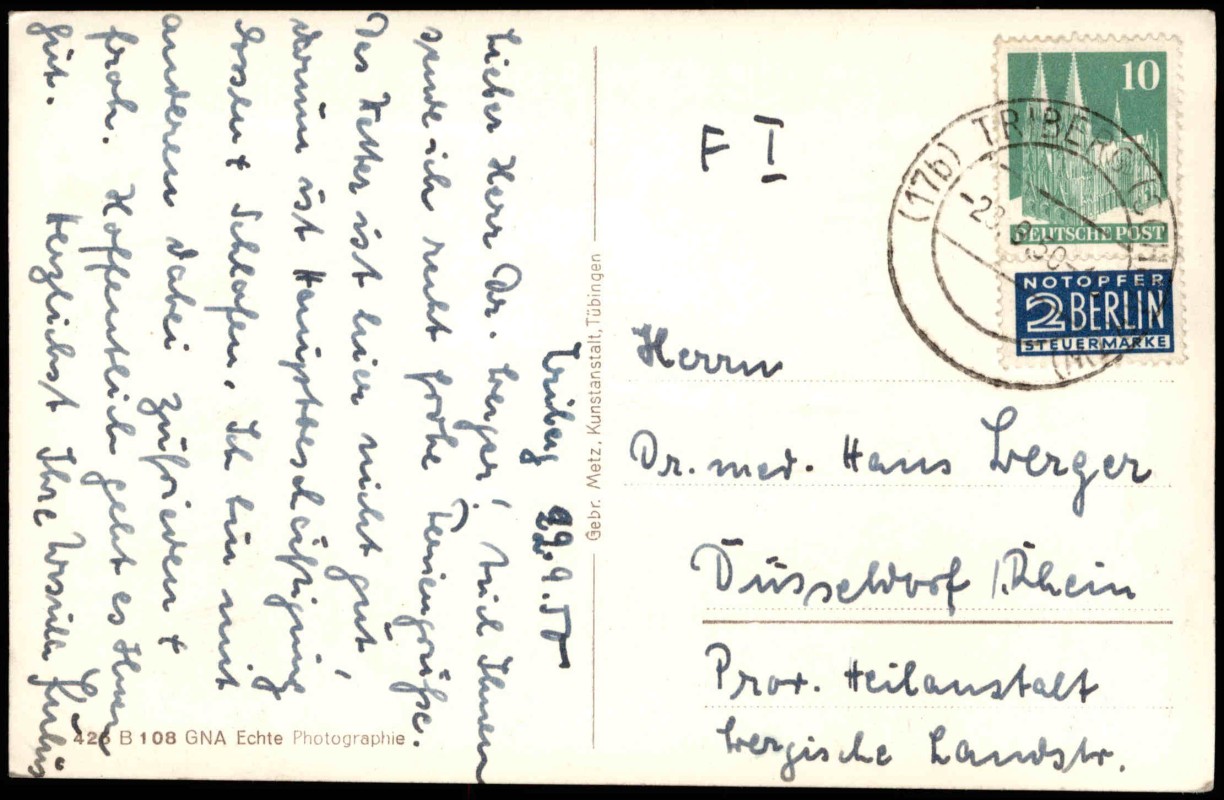 Triberg 22.9.50
Lieber Herr Dr. Berger! Auch Ihnen
sende ich recht frohe Feriengrüße.
Das Wetter ist hier nicht gut,
darum ist Hauptbeschäftigung
Dösen + Schlafen. Ich bin mit
anderen dabei zufrieden +
froh. Hoffentlich geht es Ihnen
gut. Herzlichst Ihre Ursula
426 B 108 GNA Echte Photographie.
Gebr. Metz, Kunstanstalt, Tübingen
F I
10
DEUTSCHE POST
NOTOPFER
2 BERLIN
STEUERMARKE
(17b) TRIBERG (SCH
Herrn
Dr. med. Hans Berger
Düsseldorf / Rhein
Prov. Heilanstalt
Bergische Landstr.